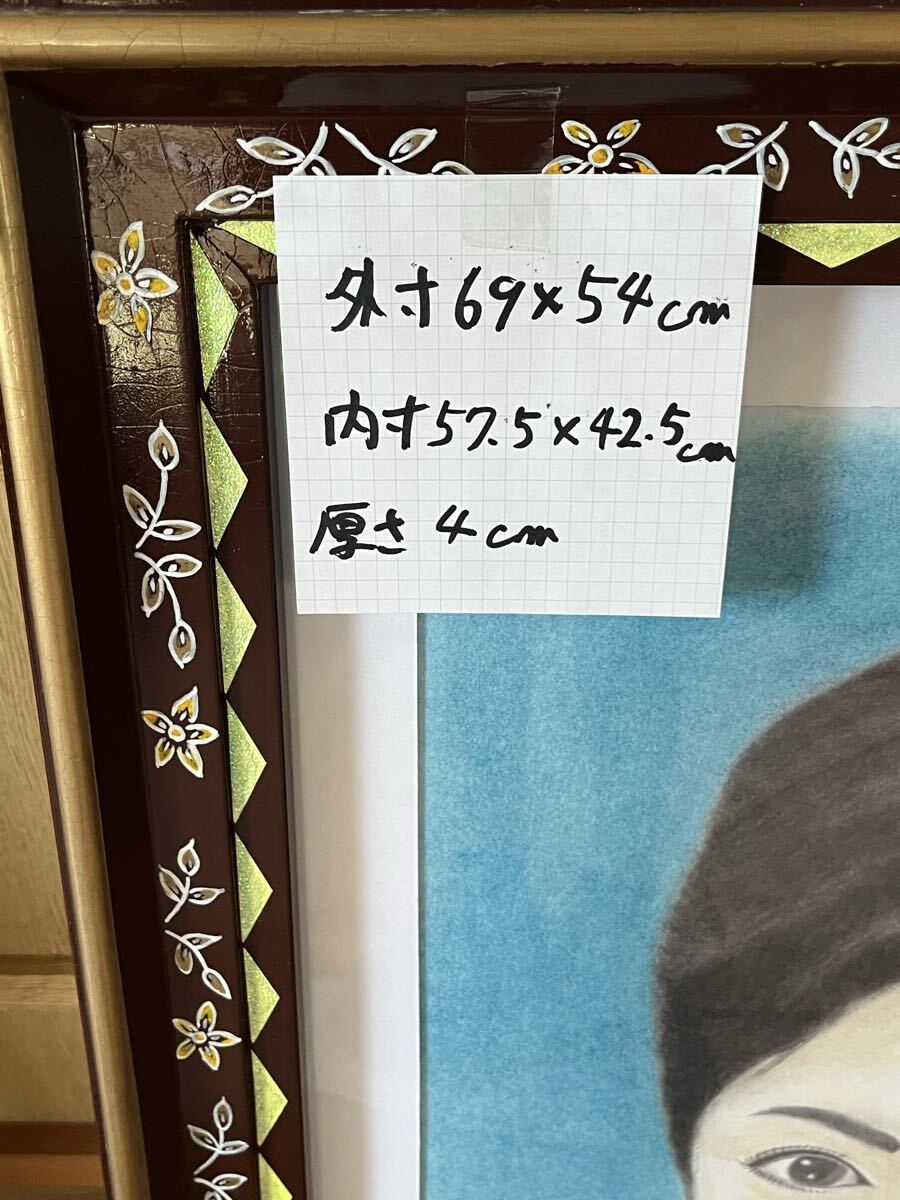 外寸69×54cm
内寸57.5×42.5cm
厚さ4cm